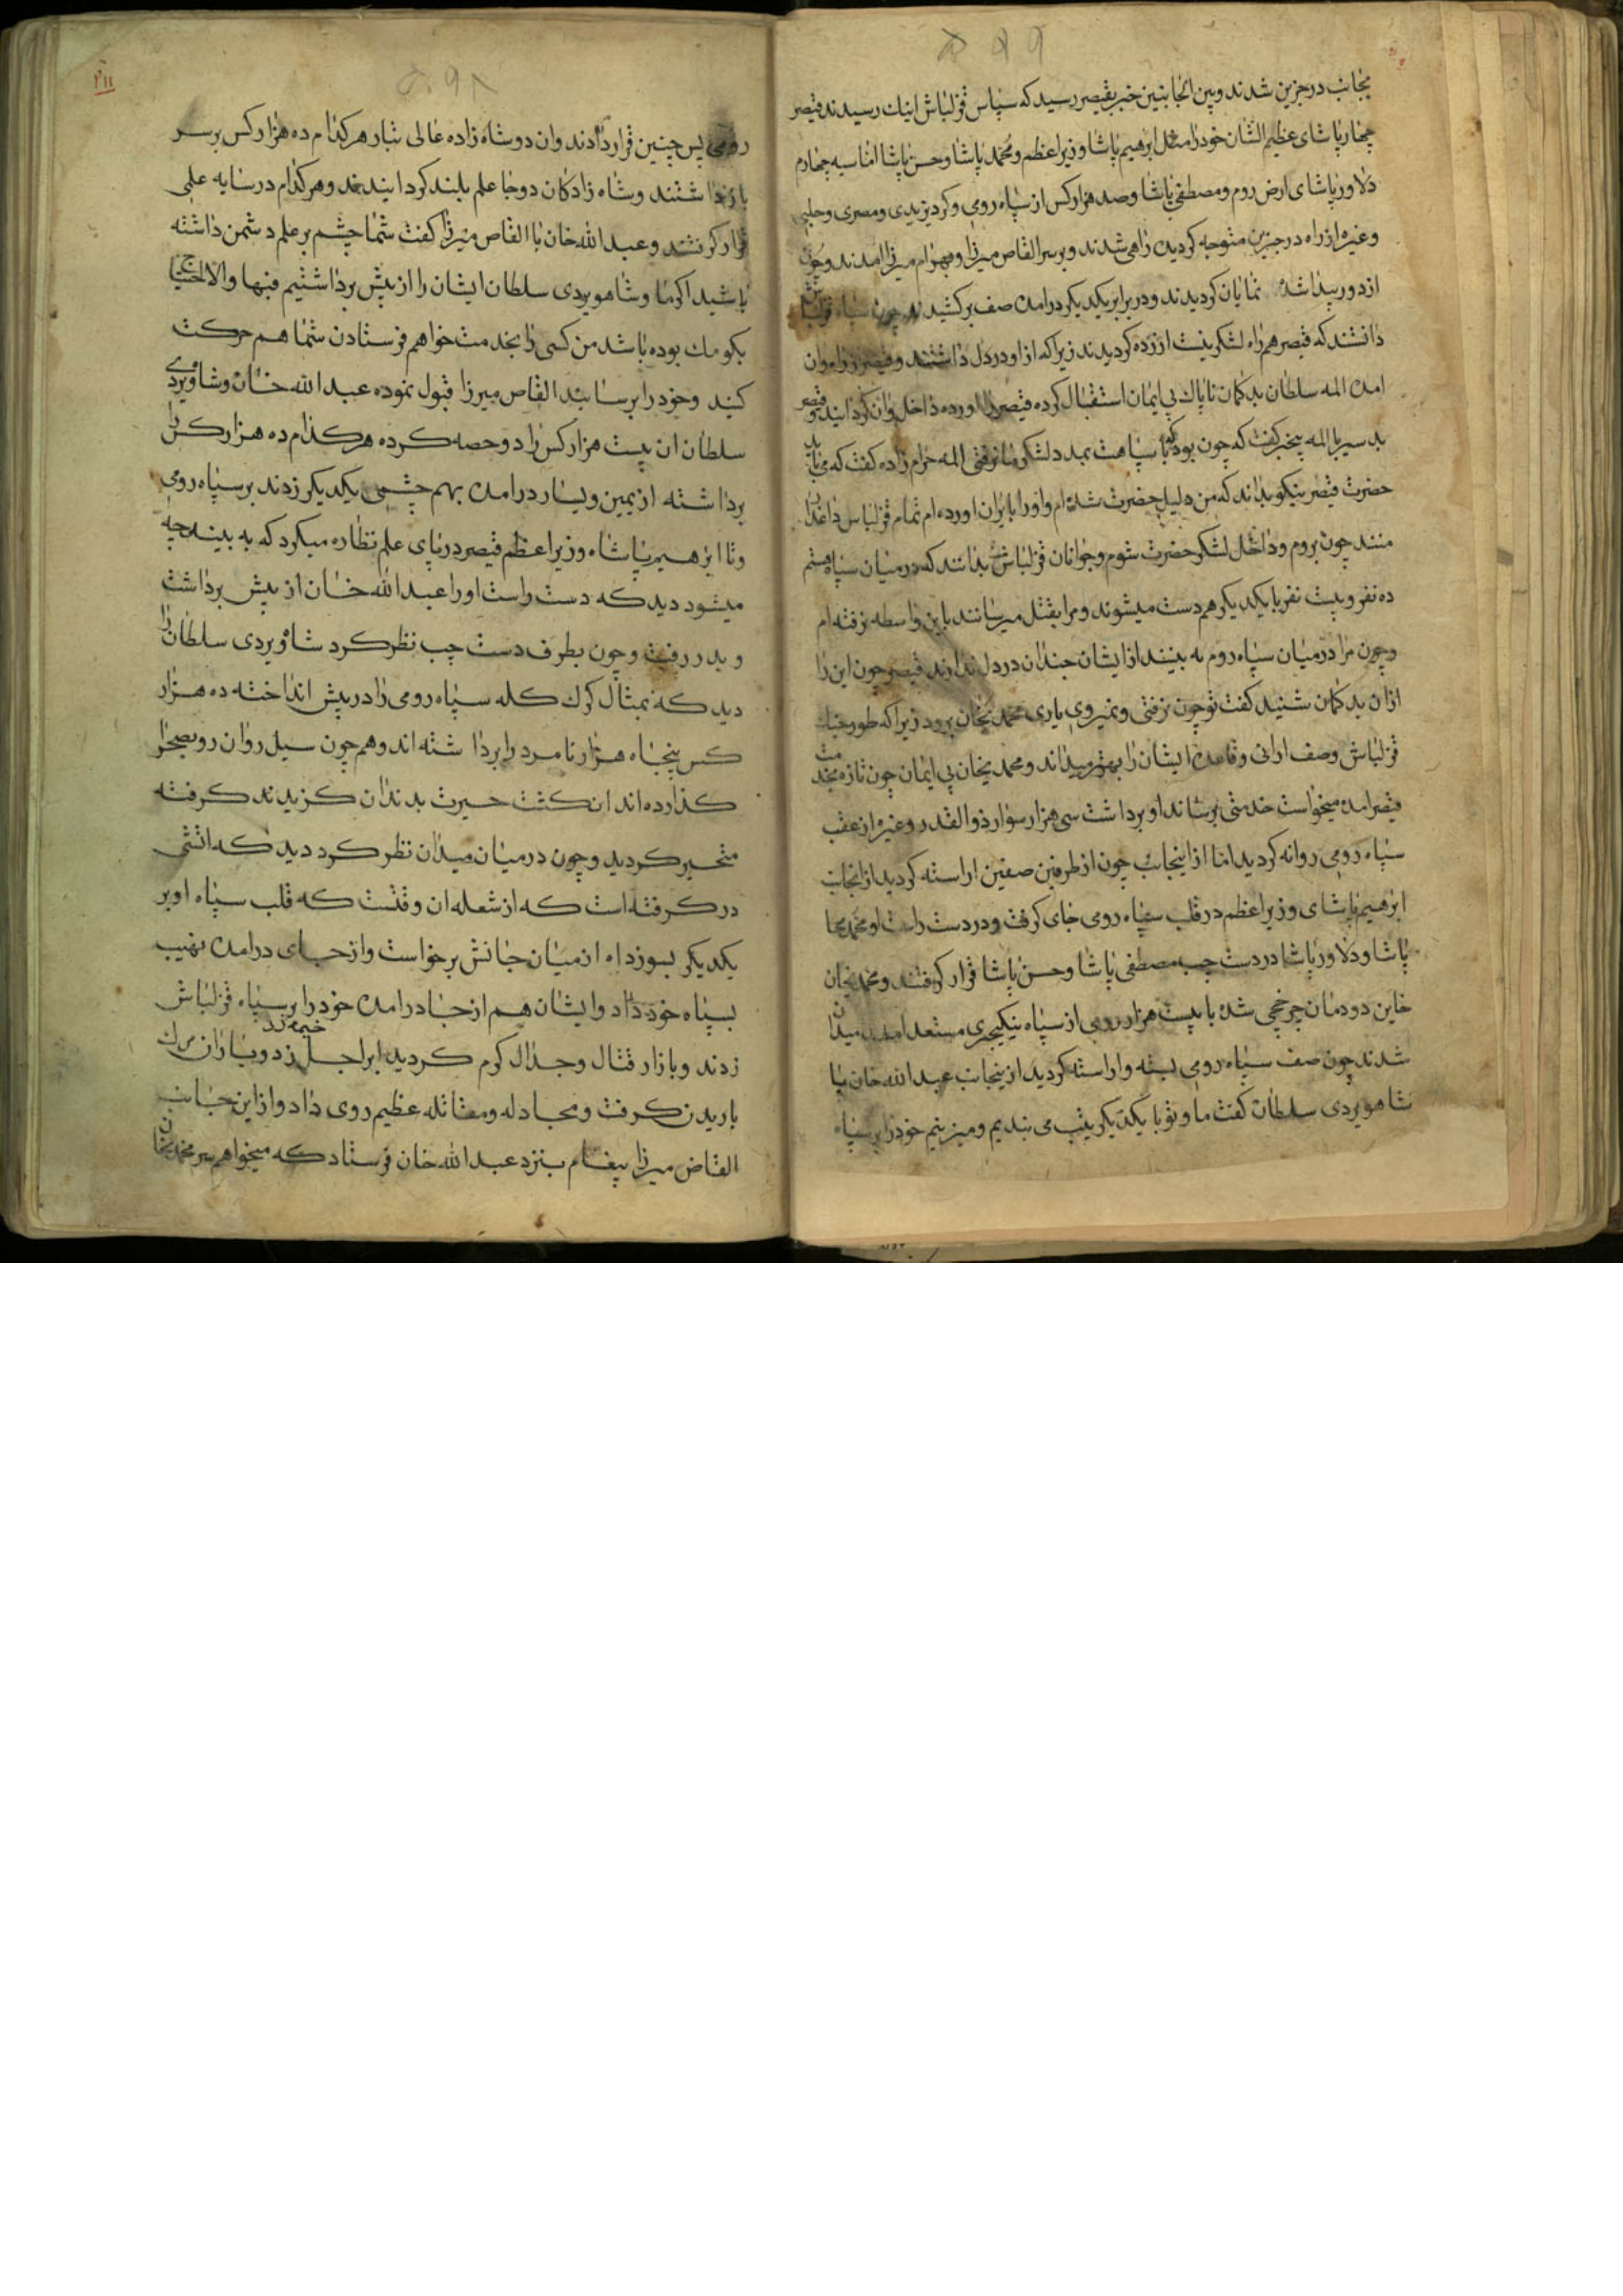 ۵۹۹
بجانب درجزین شدند و پس انجا بنین خبر بقیصر رسید که سپاس قزلباش اینك رسیدند قیصر
چهار پاشای عظیم الشان خود را مثل ابرهیم پاشا وزیر اعظم و محمد پاشا و حسن پاشا اماسیه چهارم
دلاور پاشای ارض روم و مصطفی پاشا و صد هزار کس از سپاه رومی و کرد یزیدی و مصری و حلبی
و غیره از راه درجزین متوجه کردیدن راهی شدند و بر سر القاص میرزا و بهرام میرزا امدند و چون
از دور پیدا شد نمایان کردیدند و در برابر یکدیکر درامدن صف برکشیدند چون سپاه قزلباش
دانستند که قیصر همراه لشکر نیست ازرده کردیدند زیرا که از او در دل داشتند و قیصر
امدن المه سلطان بد کمان ناپاك بی ایمان استقبال کرده قیصر را اورده داخل وان کردانید و قیصر
بد سیر با المه بیخبر کفت که چون بود که با سپاهت بمدد لشکر ما نرفتی المه حرام زاده کفت که می باید
حضرت قیصر نیکو بداند که من دلیل حضرت شده ام و او را بایران اورده ام تمام قزلباس داغدار
منند چون بروم و داخل لشکر حضرت شوم و جوانان قزلباش بدانند که در میان سپاه هستم
ده نفر و بیست نفر با یکدیکر هم دست میشوند و مرا بقتل میرسانند باین واسطه نرفته ام
و چون مرا در میان سپاه روم نه بینند از ایشان چندان در دل ندارند قیصر چون این را
ازان بد کمان شنید کفت تو چون نرفتی و نمیروی باری محمد یخان برود زیرا که طور جنك
قزلباش وصف ارائی و قاعده ایشان را بهتر میداند و محمد یخان بی ایمان چون تازه بخدمت
قیصر امده میخواست خدمتی برساند او برداشت سی هزار سوار ذو القدر و غیره از عقب
سپاه رومی روانه کردید اما از اینجانب چون از طرفین صفین اراسته کردید از انجانب
ابرهیم پاشای وزیر اعظم در قلب سپاه رومی جای کرفت و در دست راست او محمد
پاشا و دلاور پاشا در دست چپ مصطفی پاشا و حسن پاشا قرار کرفتند و محمد یخان
خاین دودمان چرخچی شده با بیست هزار رومی از سپاه ینکیجری مستعد امدن میدان
شدند چون صف سپاه رومی بسته و اراسته کردید از ینجانب عبد الله خان با
شاهویردی سلطان کفت ما و تو با یکدیکر یتب می بندیم و میزنیم خود را بر سپاه
۵۹۸
۲۱۱
رومی پس چنین قرار دادند و ان دو شاه زاده عالی تبار هر کدام ده هزار کس بر سر
باز داشتند و شاه زادکان دو جا علم بلند کردانیدند و هر کدام در سایه علمی
قرار کرفتند و عبد الله خان با القاص میرزا کفت شما چشم بر علم دشمن داشته
باشید اکر ما و شاهویردی سلطان ایشان را از پیش برداشتیم فبها والا احتیاج
بکومك بوده باشد من کسی را بخدمت خواهم فرستادن شما هم حرکت
کنید و خود را برسانید القاص میرزا قبول نموده عبد الله خان و شاویردی
سلطان ان بیست هزار کس را دو حصه کرده هر کدام ده هزار کس را
برداشته از یمین و یسار درامدن بهم چشمی یکدیکر زدند بر سپاه رومی
و تا ابرهیم پاشاه وزیر اعظم قیصر در پای علم نظاره میکرد که به بیند چه
میشود دید که دست راست او را عبد الله خان از پیش برداشت
و بدر رفت و چون بطرف دست چپ نظر کرد شاویردی سلطان را
دید که بمثال کرك کله سپاه رومی را در پیش انداخته ده هزار
کس پنجاه هزار نامرد را برداشته اند و هم چون سیل روان رو بصحرا
کذارده اند انکشت حیرت بدندان کزیدند کرفته
متحیر کردید و چون در میان میدان نظر کرد دید که اتشی
در کرفته است که از شعله ان وقتست که قلب سپاه او بر
یکدیکر بسوزد اه از میان جانش برخواست و از جای درامدن نهیب
بسپاه خود داد و ایشان هم از جا درامدن خود را بر سپاه قزلباش
زدند و بازار قتال و جدال کرم کردید ابر اجل خیمه زد و باران مرك
باریدن کرفت و مجادله و مقاتله عظیم روی داد و از این جانب
القاص میرزا پیغام بنزد عبد الله خان فرستاد که میخواهم سر محمد یخان